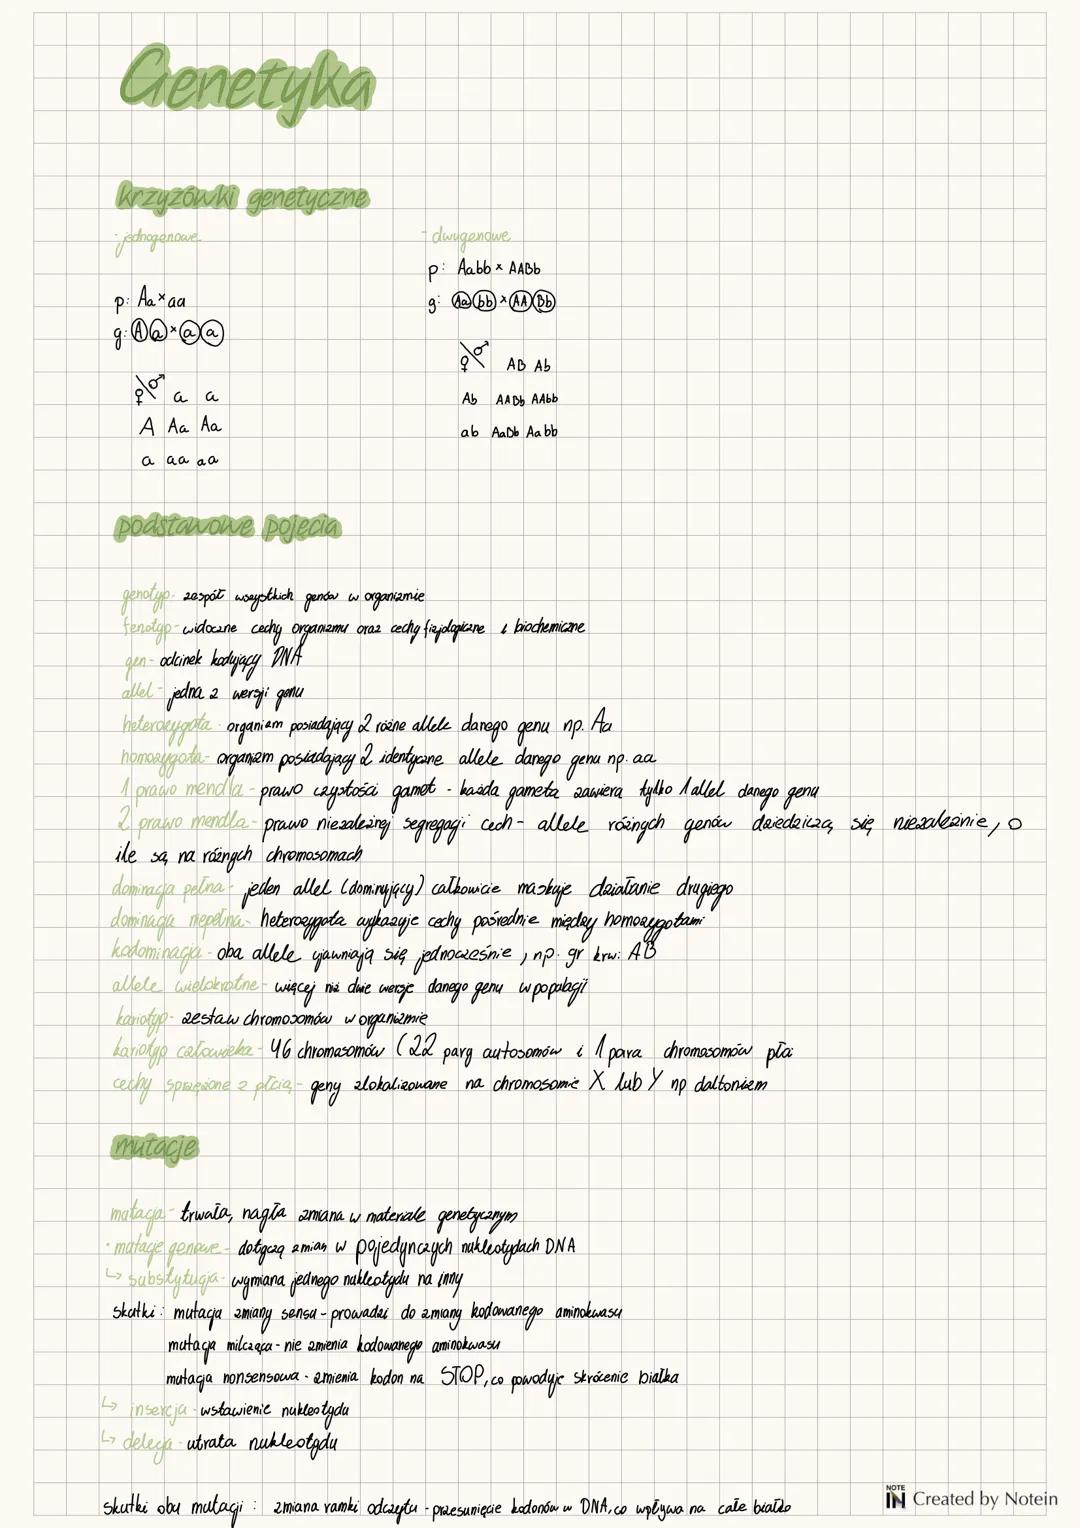 Genetyka
krzyzówki genetyczne
- jednogenowe
- dwugenowe
p: Aabb × AABb
p: Aa × aa
g: Aa bb × AA Bb
g: A a × a a
♀ \ ♂ AB Ab
♀ \ ♂ a a
Ab AABb AAbb
A Aa Aa
ab AaBb Aabb
a aa aa
podstawowe pojęcia
genotyp - zespół wszystkich genów w organizmie
fenotyp - widoczne cechy organizmu oraz cechy fizjologiczne i biochemiczne
gen - odcinek kodujący DNA
allel - jedna z wersji genu
heterozygota - organizm posiadający 2 różne allele danego genu np. Aa
homozygota - organizm posiadający 2 identyczne allele danego genu np. aa
1 prawo mendla - prawo czystości gamet - każda gameta zawiera tylko 1 allel danego genu
2 prawo mendla - prawo niezależnej segregacji cech - allele różnych genów dziedziczą się niezależnie, o
ile są na różnych chromosomach
dominacja pełna - jeden allel (dominujący) całkowicie maskuje działanie drugiego
dominacja niepełna - heterozygota wykazuje cechy pośrednie między homozygotami
kodominacja - oba allele ujawniają się jednocześnie, np. gr krwi AB
allele wielokrotne - więcej niż dwie wersje danego genu w populacji
kariotyp - zestaw chromosomów w organizmie
kariotyp człowieka - 46 chromosomów (22 pary autosomów i 1 para chromosomów płci
cechy sprzężone z płcią - geny zlokalizowane na chromosomie X lub Y np daltonizm
mutacje
mutacja - trwała, nagła zmiana w materiale genetycznym
• mutacje genowe - dotyczą zmian w pojedynczych nukleotydach DNA
↳ substytucja - wymiana jednego nukleotydu na inny
skutki: mutacja zmiany sensu - prowadzi do zmiany kodowanego aminokwasu
mutacja milcząca - nie zmienia kodowanego aminokwasu
mutacja nonsensowa - zmienia kodon na STOP, co powoduje skrócenie białka
↳ insercja - wstawienie nukleotydu
↳ delecja - utrata nukleotydu
skutki obu mutacji: zmiana ramki odczytu - przesunięcie kodonów w DNA, co wpływa na całe białko
NOTE IN Created by Notein